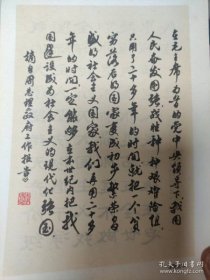 在毛主席为首的党中央领导下我国
人民奋发图强战胜种种艰难险阻
只用了二十多年的时间就把一个贫
穷落后的国家变成初步繁荣昌
盛的社会主义国家我们再用二十多
年的时间一定能够在本世纪内把我
国建设成为社会主义的现代化强国
摘自周总理政府工作报告